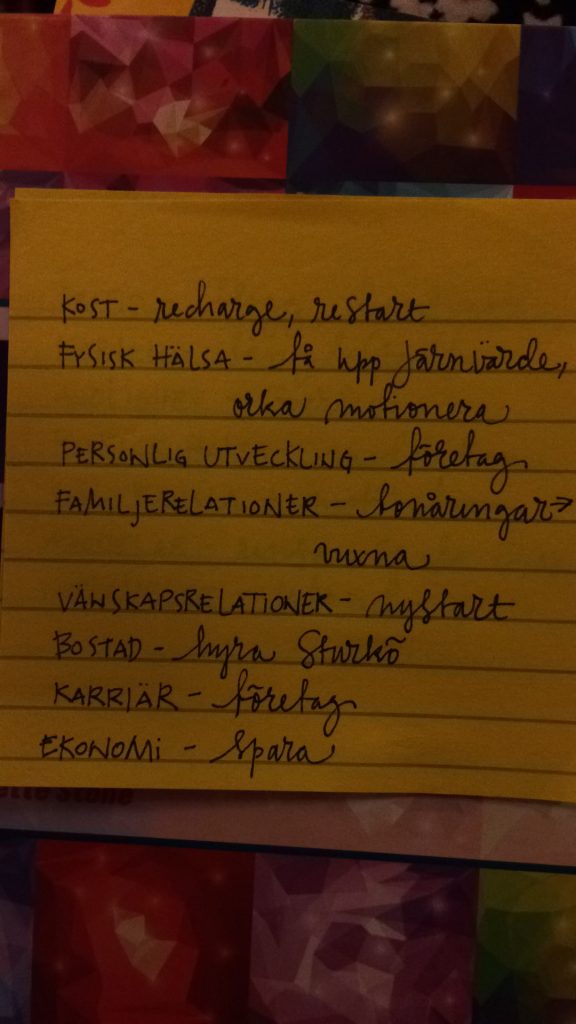 KOST - recharge, restart
FYSISK HÄLSA - få upp järnvärde,
orka motionera
PERSONLIG UTVECKLING - företag
FAMILJERELATIONER - tonåringar →
vuxna
VÄNSKAPSRELATIONER - nystart
BOSTAD - hyra Sturkö
KARRIÄR - företag
EKONOMI - spara
Stone